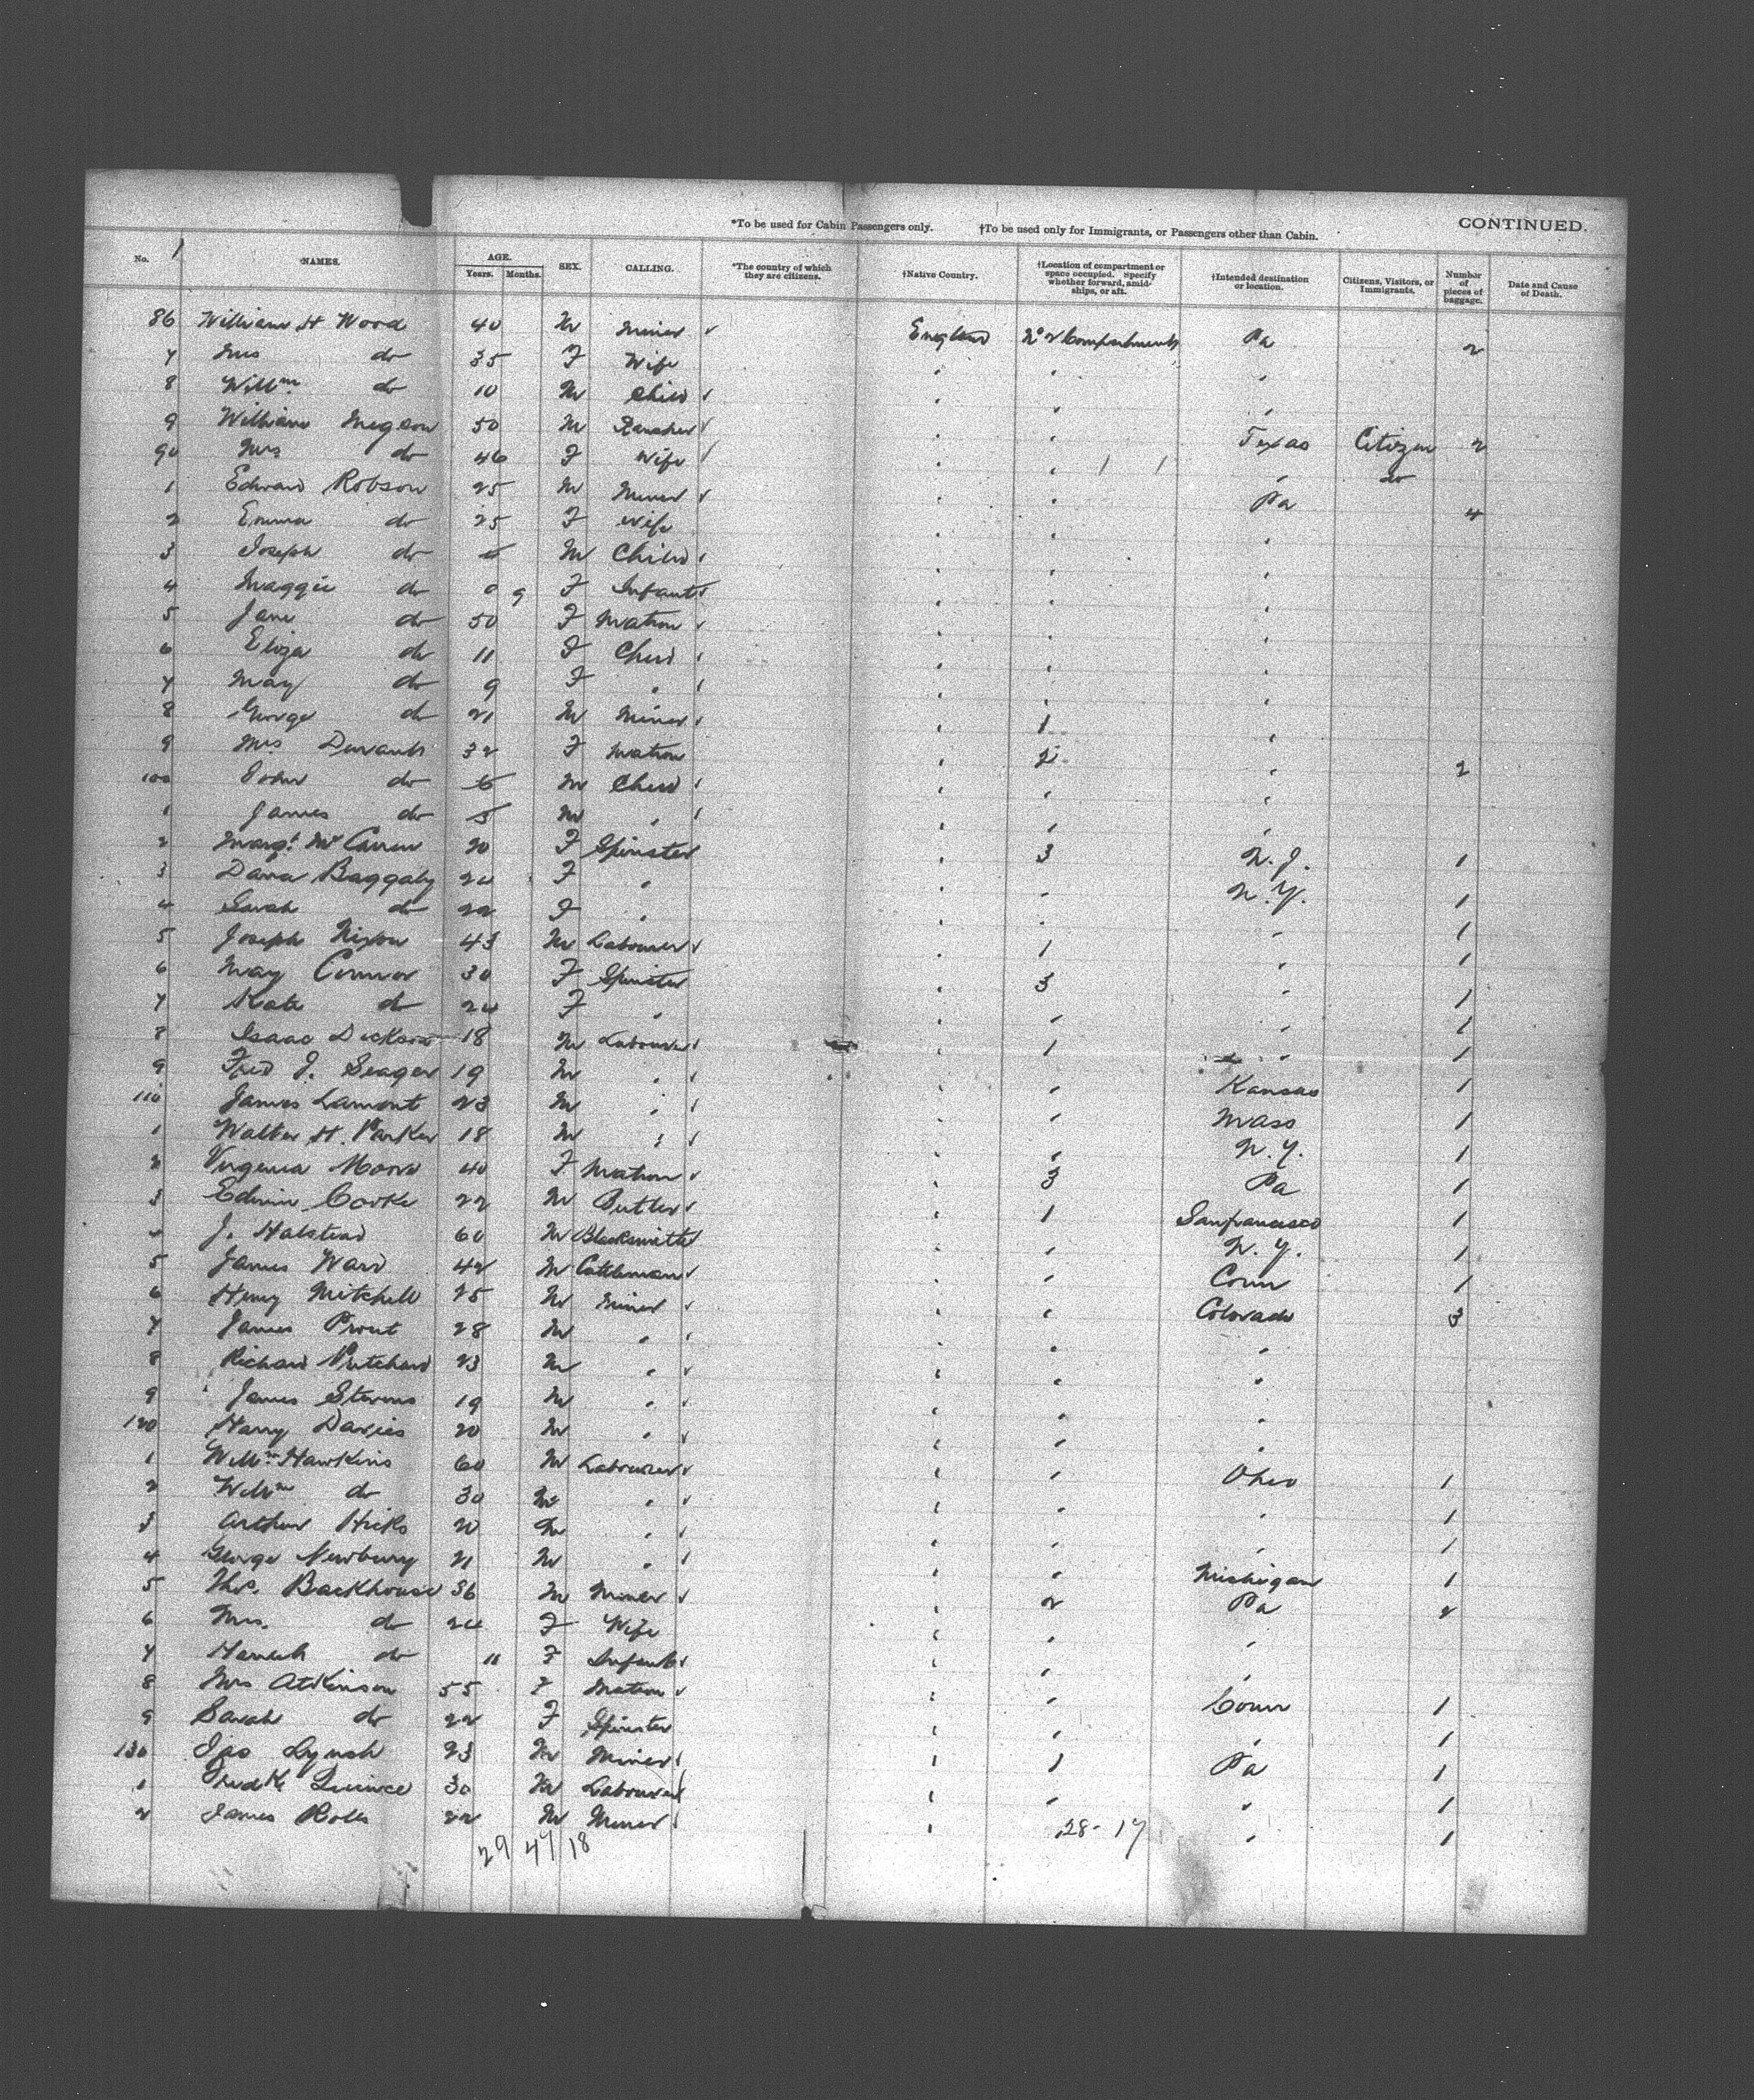 *To be used for Cabin Passengers only. †To be used only for Immigrants, or Passengers other than Cabin. CONTINUED.
No. NAMES. AGE. Years. Months. SEX. CALLING. *The country of which they are citizens. †Native Country. †Location of compartment or space occupied. Specify whether forward, amidships, or aft. †Intended destination or location. Citizens, Visitors, or Immigrants. Number of pieces of baggage. Date and Cause of Death.
86 William H Wood 40 M Miner England No 2 Compartment Pa 2
7 Mrs do 35 F Wife
8 Willm do 10 M Child
9 William Megson 50 M Rancher Texas Citizen 2
90 Mrs do 46 F Wife do
1 Edward Robson 25 M Miner Pa 4
2 Emma do 25 F Wife
3 Joseph do M Child
4 Maggie do 0 9 F Infant
5 Jane do 50 F Matron
6 Eliza do 11 F Child
7 May do 9 F "
8 George do 21 M Miner 1
9 Mrs 32 F Matron 2 2
100 John do 6 M Child
1 James do 5 M "
2 Margt 20 F Spinster 3 N. J. 1
3 Baggaly 24 F " N. Y. 1
4 Sarah do 22 F " 1
5 Joseph Nixon 43 M Labourer 1 1
6 May Connor 30 F Spinster 3 1
7 Kate do 24 F " 1
8 Isaac Dickson 18 M Labourer 1 1
9 Fred J. Seager 19 M " Kansas 1
110 James Lamont 23 M " Mass 1
1 Walter H. Parker 18 M " N. Y. 1
2 Virginia Moore 40 F Matron 3 Pa 1
3 Edwin Cooke 22 M Butler 1 Sanfrancisco 1
4 J. Halstead 60 M Blacksmith N. Y. 1
5 James Ward 42 M Cattleman Conn 1
6 Henry Mitchell 25 M Miner Colorado 3
7 James Prout 28 M "
8 Richard Pritchard 23 M "
9 James Stevens 19 M "
120 Harry Davies 20 M "
1 Willm Hawkins 60 M Labourer Ohio 1
2 Willm do 30 M " 1
3 Arthur Hicks 20 M " 1
4 George Newbury 21 M " Michigan 1
5 Thos. Backhouse 36 M Miner 2 Pa 2
6 Mrs. do 24 F Wife
7 Hannah do 11 F Infant
8 Mrs Atkinson 55 F Matron Conn 1
9 Sarah do 22 F Spinster 1
130 Lynch 23 M Miner 1 Pa 1
1 Fredk 30 M Labourer 1
2 James Rolls 22 M Miner 1
29 47 18 28-17